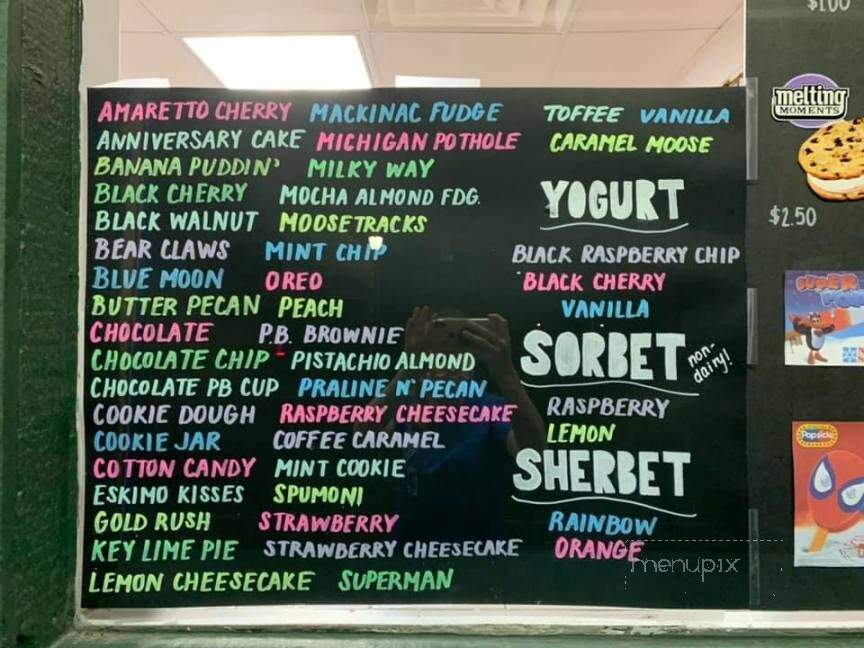 $1.00
AMARETTO CHERRY MACKINAC FUDGE TOFFEE VANILLA
ANNIVERSARY CAKE MICHIGAN POTHOLE CARAMEL MOOSE
BANANA PUDDIN' MILKY WAY
BLACK CHERRY MOCHA ALMOND FDG.
BLACK WALNUT MOOSETRACKS
BEAR CLAWS MINT CHIP
BLUE MOON OREO
BUTTER PECAN PEACH
CHOCOLATE P.B. BROWNIE
CHOCOLATE CHIP PISTACHIO ALMOND
CHOCOLATE PB CUP PRALINE N' PECAN
COOKIE DOUGH RASPBERRY CHEESECAKE
COOKIE JAR COFFEE CARAMEL
COTTON CANDY MINT COOKIE
ESKIMO KISSES SPUMONI
GOLD RUSH STRAWBERRY
KEY LIME PIE STRAWBERRY CHEESECAKE
LEMON CHEESECAKE SUPERMAN
YOGURT
BLACK RASPBERRY CHIP
BLACK CHERRY
VANILLA
SORBET non-dairy!
RASPBERRY
LEMON
SHERBET
RAINBOW
ORANGE
menupix
melting
MOMENTS
$2.50
SUPER
Popsicle